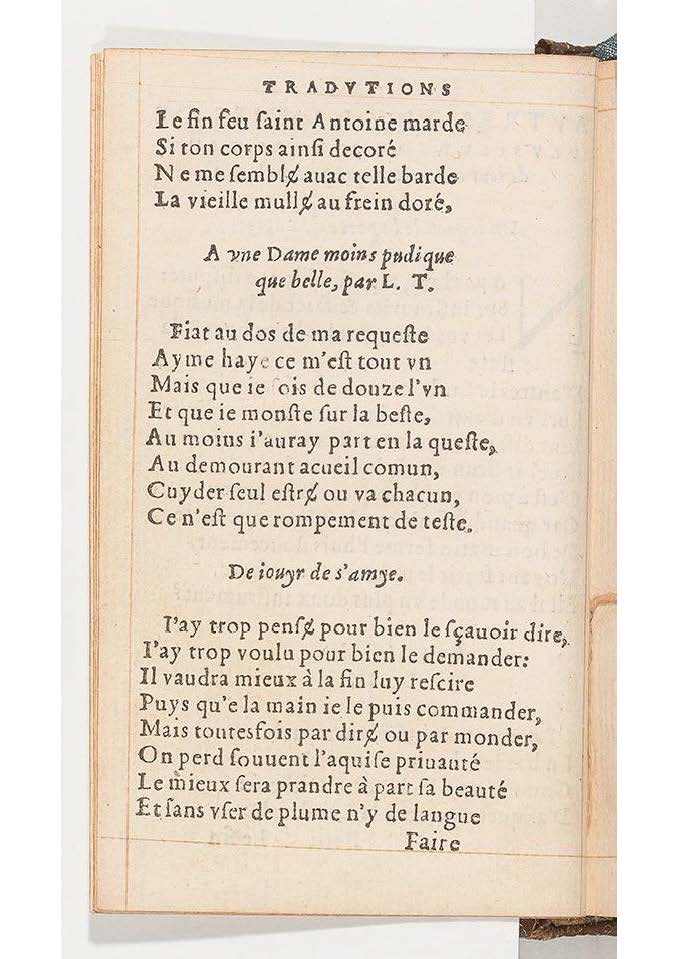 TRADVTIONS
Le fin feu ſaint Antoine marde
Si ton corps ainſi decoré
Ne me ſemblɇ auac telle barde
La vieille mullɇ au frein doré,
A vne Dame moins pudique
que belle, par L. T.
Fiat au dos de ma requeſte
Ayme haye ce m'eſt tout vn
Mais que ie ſois de douze l'vn
Et que ie monſte ſur la beſte,
Au moins i'auray part en la queſte,
Au demourant acueil comun,
Cuyder ſeul eſtrɇ ou va chacun,
Ce n'eſt que rompement de teſte.
De iouyr de s'amye.
I'ay trop penſɇ pour bien le ſçauoir dire,
I'ay trop voulu pour bien le demander:
Il vaudra mieux à la fin luy reſcire
Puys qu'e la main ie le puis commander,
Mais toutesfois par dirɇ ou par monder,
On perd ſouuent l'aquiſe priuauté
Le mieux ſera prandre à part ſa beauté
Et ſans vſer de plume n'y de langue
Faire